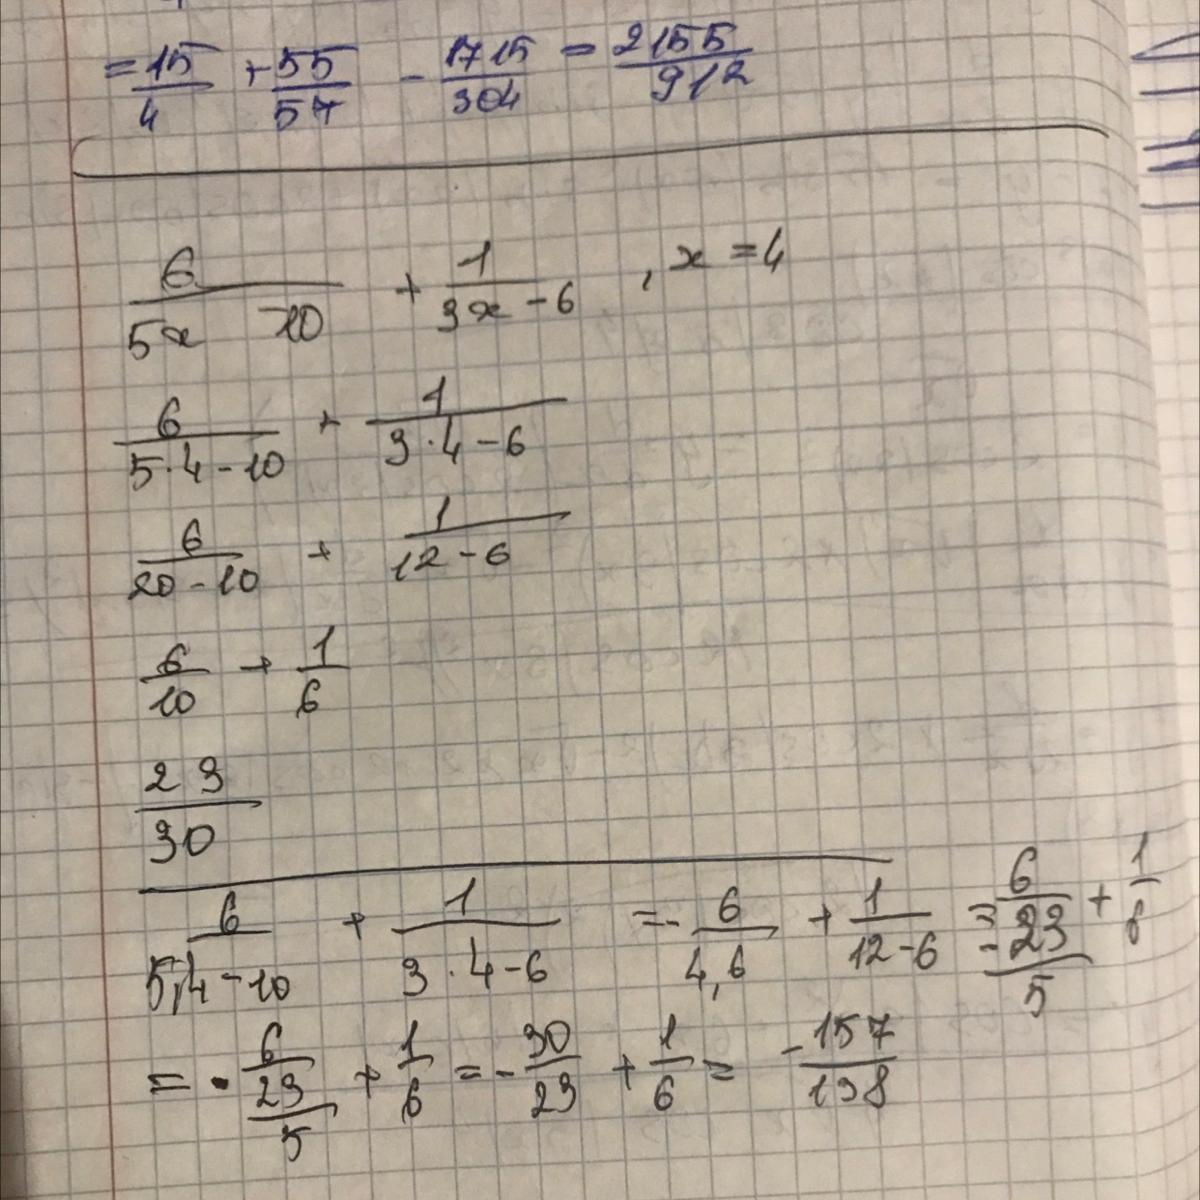 = 15/4 + 55/57 - 1715/304 = 2155/912
6/(5x -10) + 1/(3x - 6) , x = 4
6/(5·4 - 10) + 1/(3·4 - 6)
6/(20 - 10) + 1/(12 - 6)
6/10 + 1/6
23/30
6/(5,4 - 10) + 1/(3·4 - 6) = - 6/4,6 + 1/(12 - 6) = 6/(-23/5) + 1/6
= - 6/(23/5) + 1/6 = - 30/23 + 1/6 = -157/138